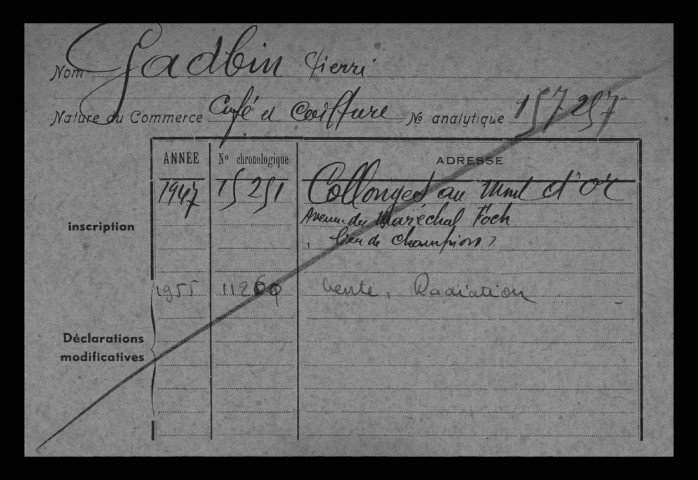 Nom Gadbin Pierre
Nature du Commerce Café & Coiffure No analytique 157 257
ANNÉE No chronologique ADRESSE
inscription 1947 15251 Collonges au Mont d'or
Avenue du Maréchal Foch
(lieu de Champions)
1955 11260 Vente, Radiation
Déclarations
modificatives